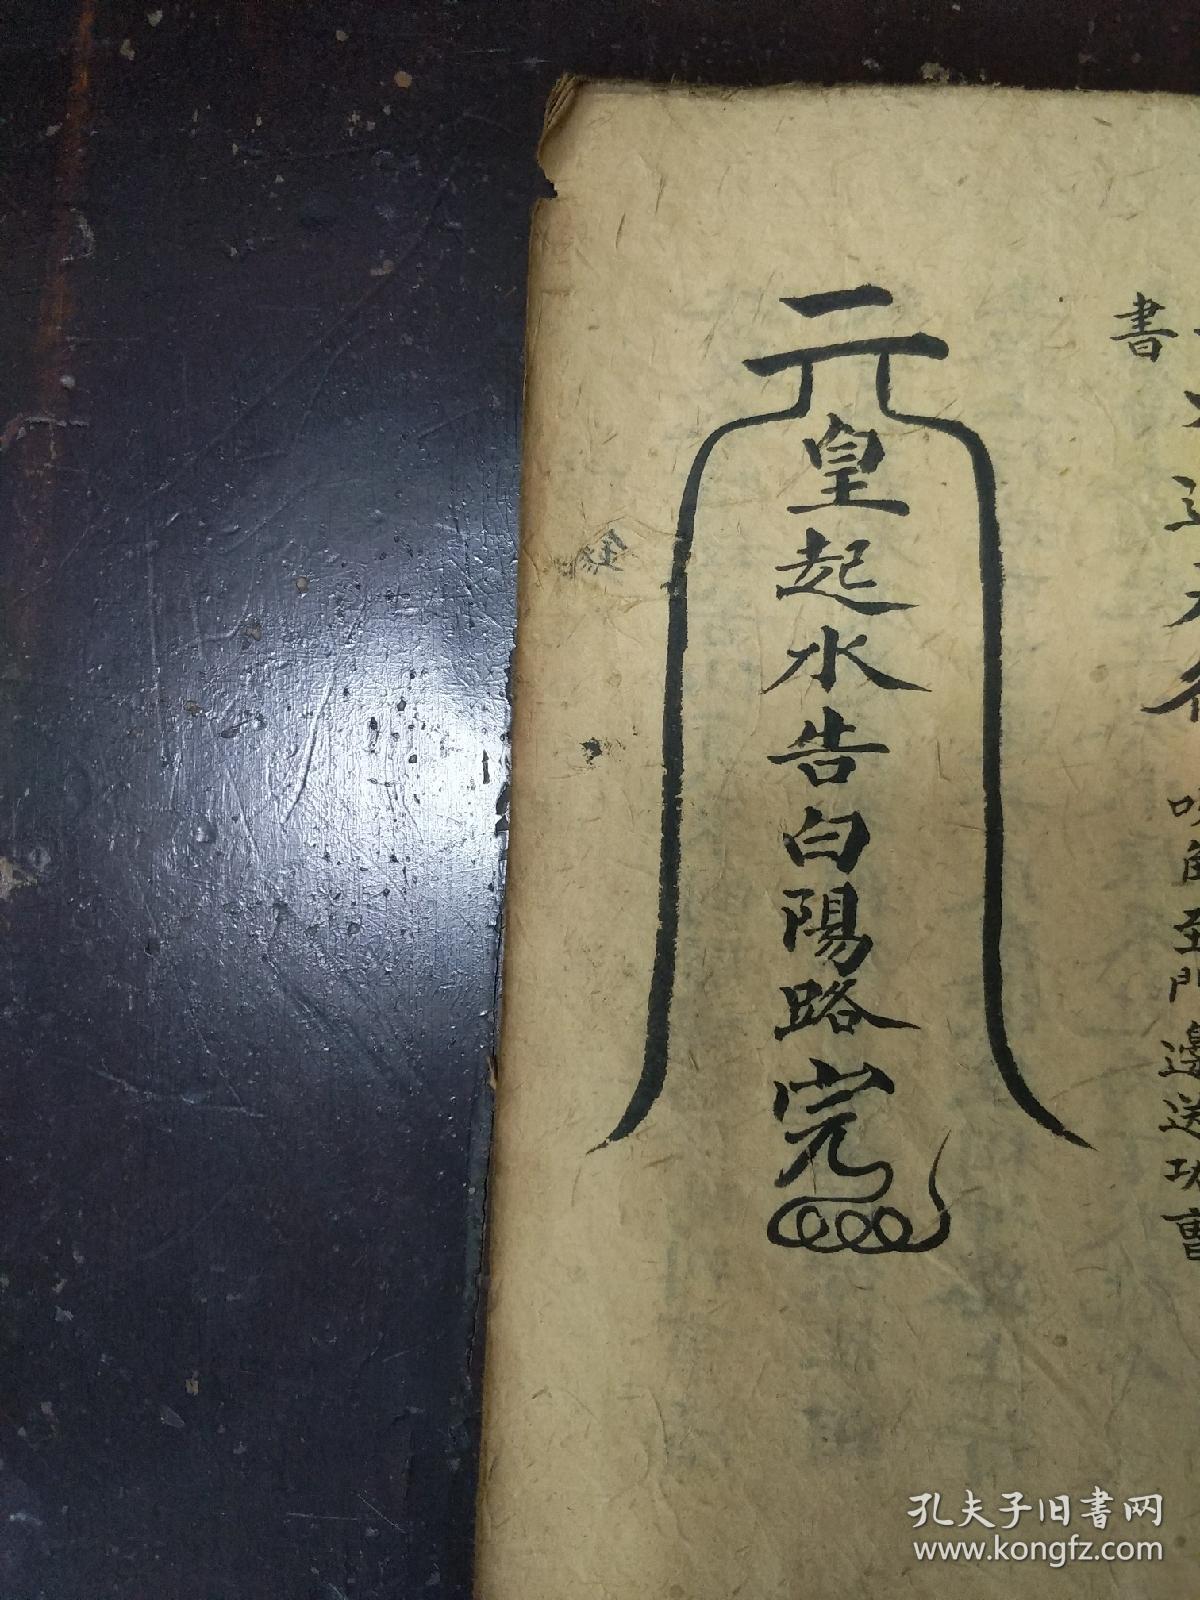 書
吹角至門邊送功曹
元皇起水告白陽路完
孔夫子旧书网
www.kongfz.com